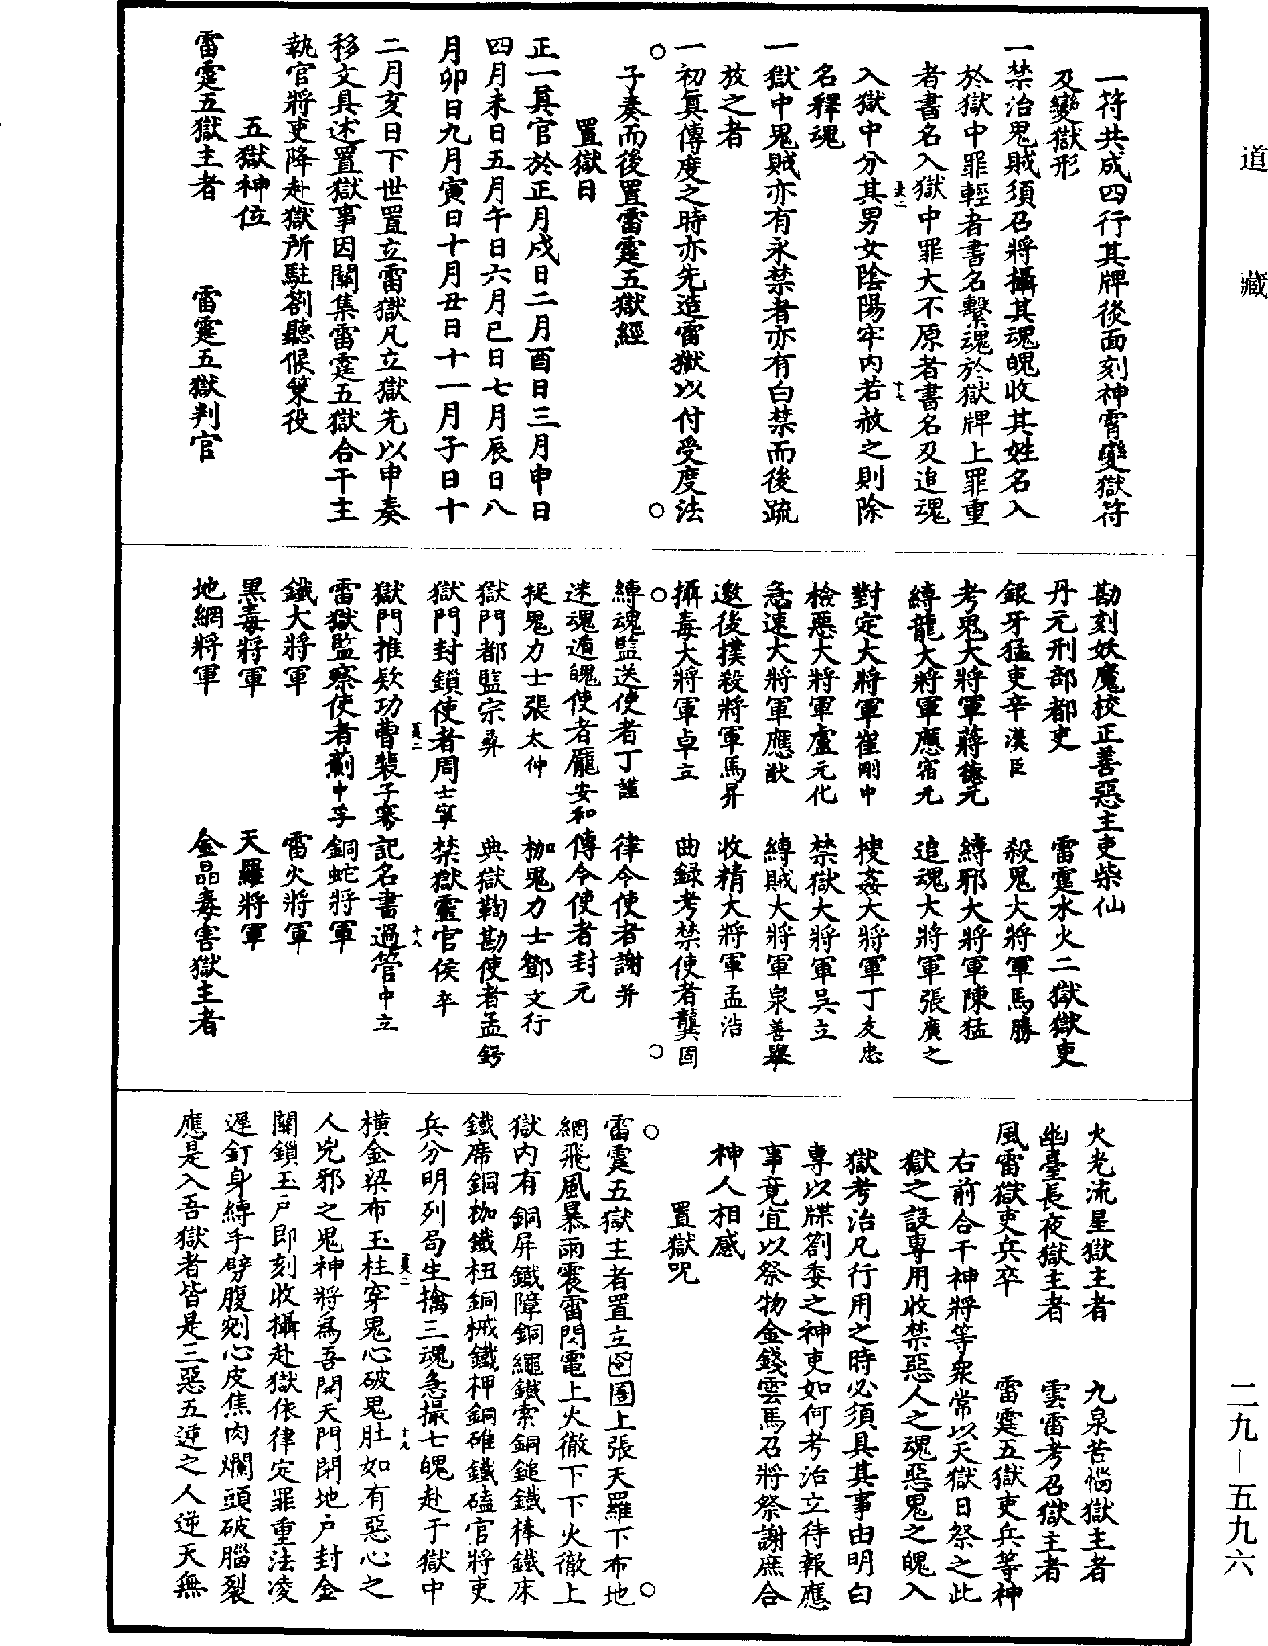 道藏
一符共成四行其牌後面刻神霄變獄符
及變獄形
一禁治鬼賊須召將攝其魂魄收其姓名入
於獄中罪輕者書名繫魂於獄牌上罪重
者書名入獄中罪大不原者書名及追魂
入獄中分其男女陰陽牢內若赦之則除
名釋魂
一獄中鬼賊亦有永禁者亦有白禁而後疏
放之者
一初真傳度之時亦先造雷獄以付受度法
子奏而後置雷霆五獄經
置獄日
正一真官於正月戌日二月酉日三月申日
四月未日五月午日六月巳日七月辰日八
月卯日九月寅日十月丑日十一月子日十
二月亥日下世置立雷獄凡立獄先以申奏
移文具述置獄事因關集雷霆五獄合干主
執官將吏降赴獄所駐劄聽候策役
五獄神位
雷霆五獄主者　雷霆五獄判官
勘刻妖魔校正善惡主吏柴仙
丹元刑部都吏　雷霆水火二獄獄吏
銀牙猛吏辛漢臣　殺鬼大將軍馬勝
考鬼大將軍蔣德元　縛邪大將軍陳猛
縛龍大將軍應宿元　追魂大將軍張廣之
對定大將軍崔剛中　搜姦大將軍丁友忠
檢惡大將軍盧元化　禁獄大將軍吳立
急速大將軍應猷　縛賊大將軍泉善舉
邀後撲殺將軍馬昇　收精大將軍孟浩
攝毒大將軍卓立　曲録考禁使者龔固
縛魂監送使者丁謹　律令使者謝弁
迷魂遁魄使者龐安和　傳令使者封元
捉鬼力士張太仲　枷鬼力士鄧文行
獄門都監宗彝　典獄鞫勘使者孟鍔
獄門封鎖使者周士寧　禁獄靈官侯卒
獄門推欵功曹裴子騫　記名書過管中立
雷獄監察使者蒯中孚　銅蛇將軍
鐵大將軍　雷火將軍
黑毒將軍　天羅將軍
地網將軍　金晶毒害獄主者
火光流星獄主者　九泉苦惱獄主者
幽臺長夜獄主者　雲雷考召獄主者
風雷獄吏兵卒　雷霆五獄吏兵等神
右前合干神將等衆常以天獄日祭之此
獄之設專用收禁惡人之魂惡鬼之魄入
獄考治凡行用之時必須具其事由明白
專以牒劄委之神吏如何考治立待報應
事竟宜以祭物金錢雲馬召將祭謝庶合
神人相感
置獄呪
雷霆五獄主者置立囹圄上張天羅下布地
網飛風暴雨震雷閃電上火徹下下火徹上
獄內有銅屏鐵障銅繩鐵索銅鎚鐵棒鐵床
鐵席銅枷鐵杻銅械鐵柙銅碓鐵磕官將吏
兵分明列局生擒三魂急撮七魄赴于獄中
橫金梁布玉柱穿鬼心破鬼肚如有惡心之
人兇邪之鬼神將爲吾開天門閉地戶封金
關鎖玉戶即刻收攝赴獄依律定罪重法凌
遲釘身縛手劈腹剜心皮焦肉爛頭破腦裂
應是入吾獄者皆是三惡五逆之人逆天無
二九—五九六